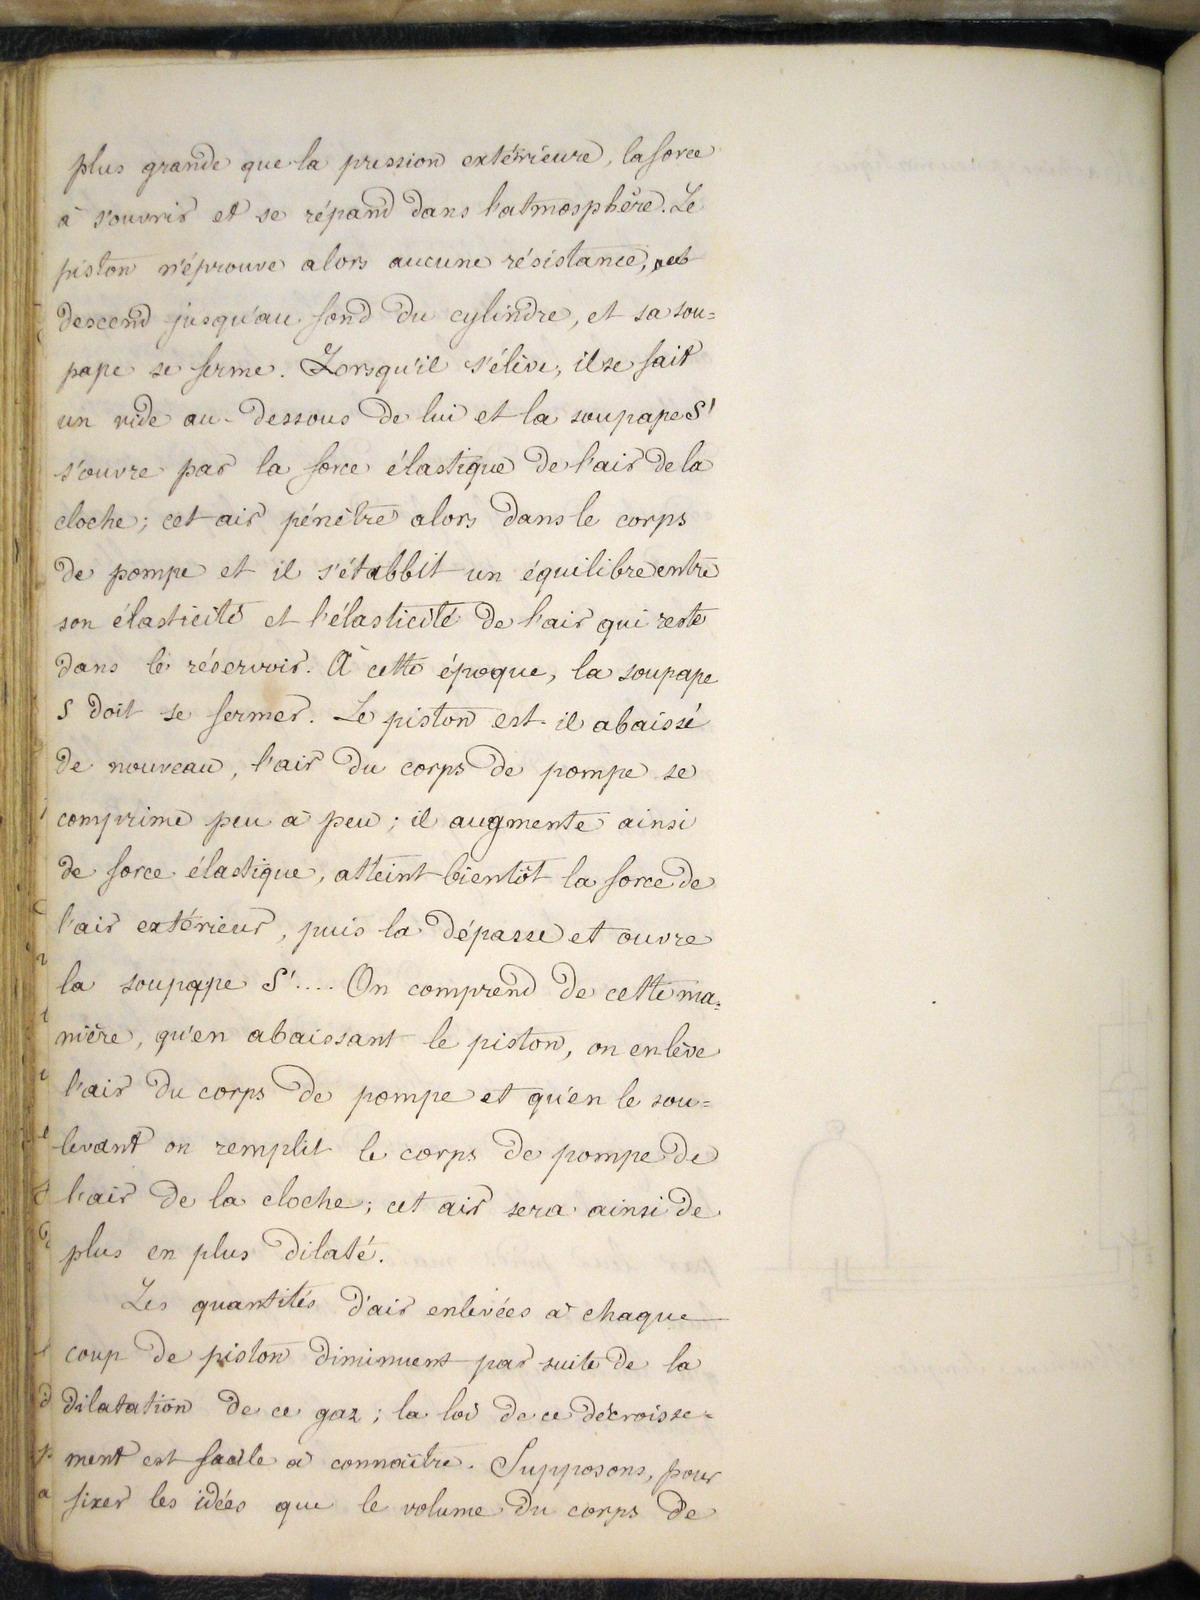 plus grande que la pression extérieure, la force
à s'ouvrir et se répand dans l'atmosphère. Le
piston n'éprouve alors aucune résistance,
descend jusqu'au fond du cylindre, et sa sou=
pape se ferme. Lorsqu'il s'élève, il se fait
un vide au-dessous de lui et la soupape S'
s'ouvre par la force élastique de l'air de la
cloche; cet air pénètre alors dans le corps
de pompe et il s'établit un équilibre entre
son élasticité et l'élasticité de l'air qui reste
dans le réservoir. A cette époque, la soupape
S doit se fermer. Le piston est-il abaissé
de nouveau, l'air du corps de pompe se
comprime peu à peu; il augmente ainsi
de force élastique, atteint bientôt la force de
l'air extérieur, puis la dépasse et ouvre
la soupape S'.... On comprend de cette ma=
nière, qu'en abaissant le piston, on enlève
l'air du corps de pompe et qu'en le sou=
levant on remplit le corps de pompe de
l'air de la cloche; cet air sera ainsi de
plus en plus dilaté.
Les quantités d'air enlevées à chaque
coup de piston diminuent par suite de la
dilatation de ce gaz; la loi de ce décroisse=
ment est facile à connaître. Supposons, pour
fixer les idées que le volume du corps de